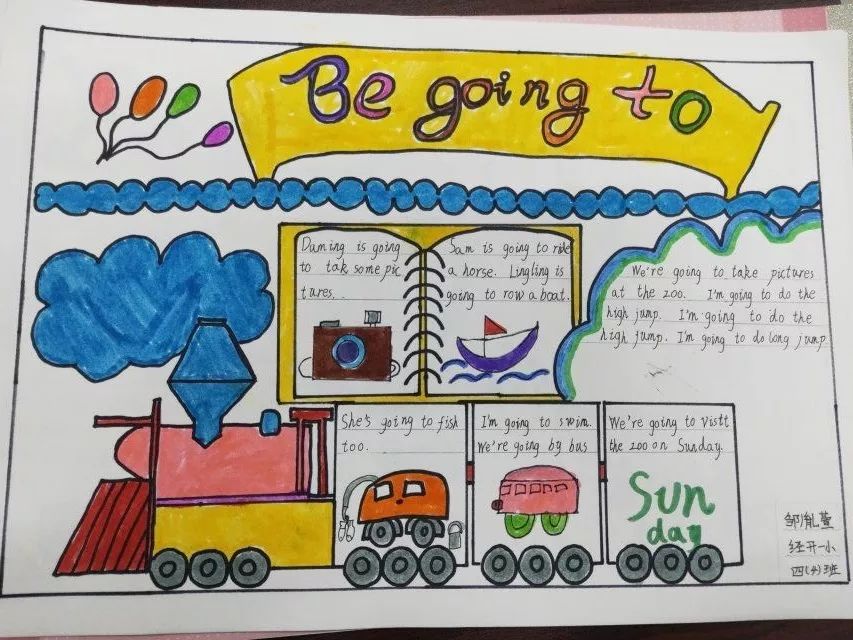 Be going to
Daming is going
to tak some pic
tures.
Sam is going to ride
a horse. Lingling is
going to row a boat.
We're going to take pictures
at the zoo. I'm going to do the
high jump. I'm going to do the
high jump. I'm going to do long jump
She's going to fish
too.
I'm going to swim.
We're going by bus
We're going to visit
the zoo on Sunday.
Sun
day
经开一小
四(4)班